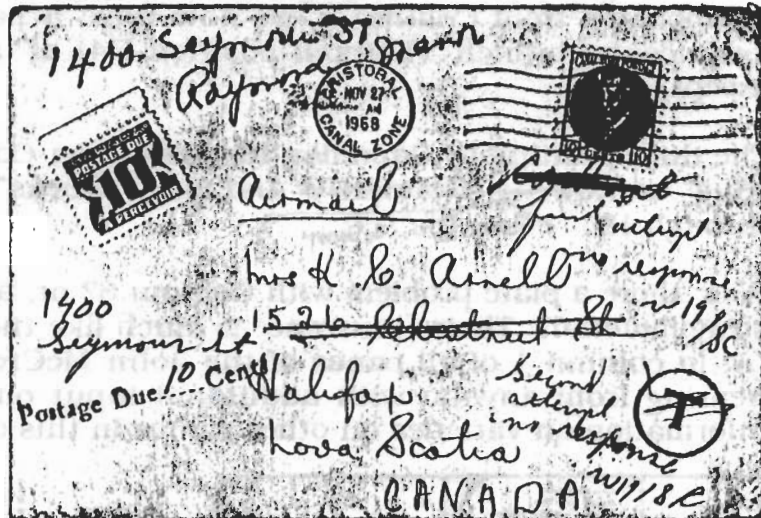 1400 Seymour St
Raymond Manor
CRISTOBAL
NOV 27
AM
1968
CANAL ZONE
POSTAGE DUE
10
A PERCEVOIR
Airmail
first attempt
no response
W19/8C
Mrs H. C. Arnell
1526 Chestnut St
1400
Seymour St
Postage Due 10 Cents
Halifax
Nova Scotia
CANADA
Second
attempt
no response
W19/8C
T